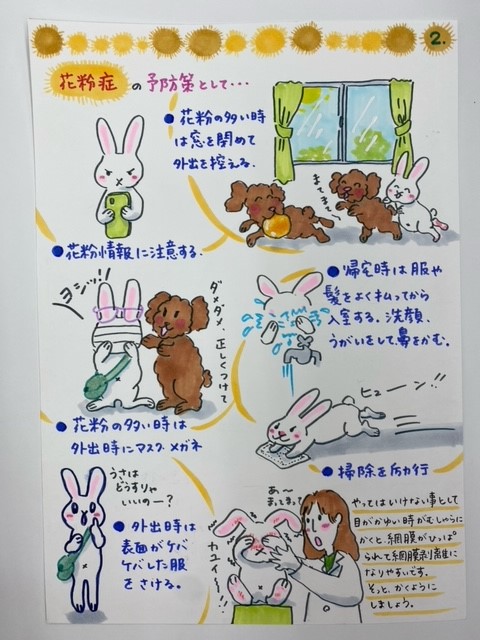 2.
花粉症の予防策として…
●花粉の多い時
は窓を閉めて
外出を控える.
まてまて~
●花粉情報に注意する.
ヨシッ!!
ダメダメ、正しくつけて
●帰宅時は服や
髪をよく払ってから
入室する. 洗顔、
うがいをして、鼻をかむ.
ヒューン!!
●花粉の多い時は
外出時にマスク メガネ
●掃除を励行
うさは
どうすりゃ
いいのー?
●外出時は
表面がケバ
ケバした服
をさける。
あ~
まってまって
カユイ~!!
やってはいけない事として
目がかゆい時がむしゃらに
かくと、網膜がひっぱ
られて網膜剥離に
なりやすいです。
そっと、かくように
しましょう。